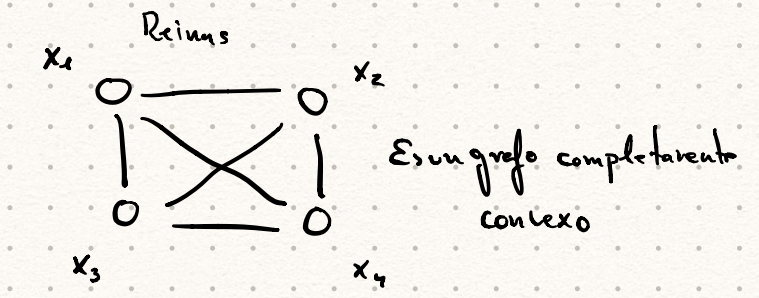 Reinas
x₁
x₂
Es un grafo completamente
conexo
x₃
x₄